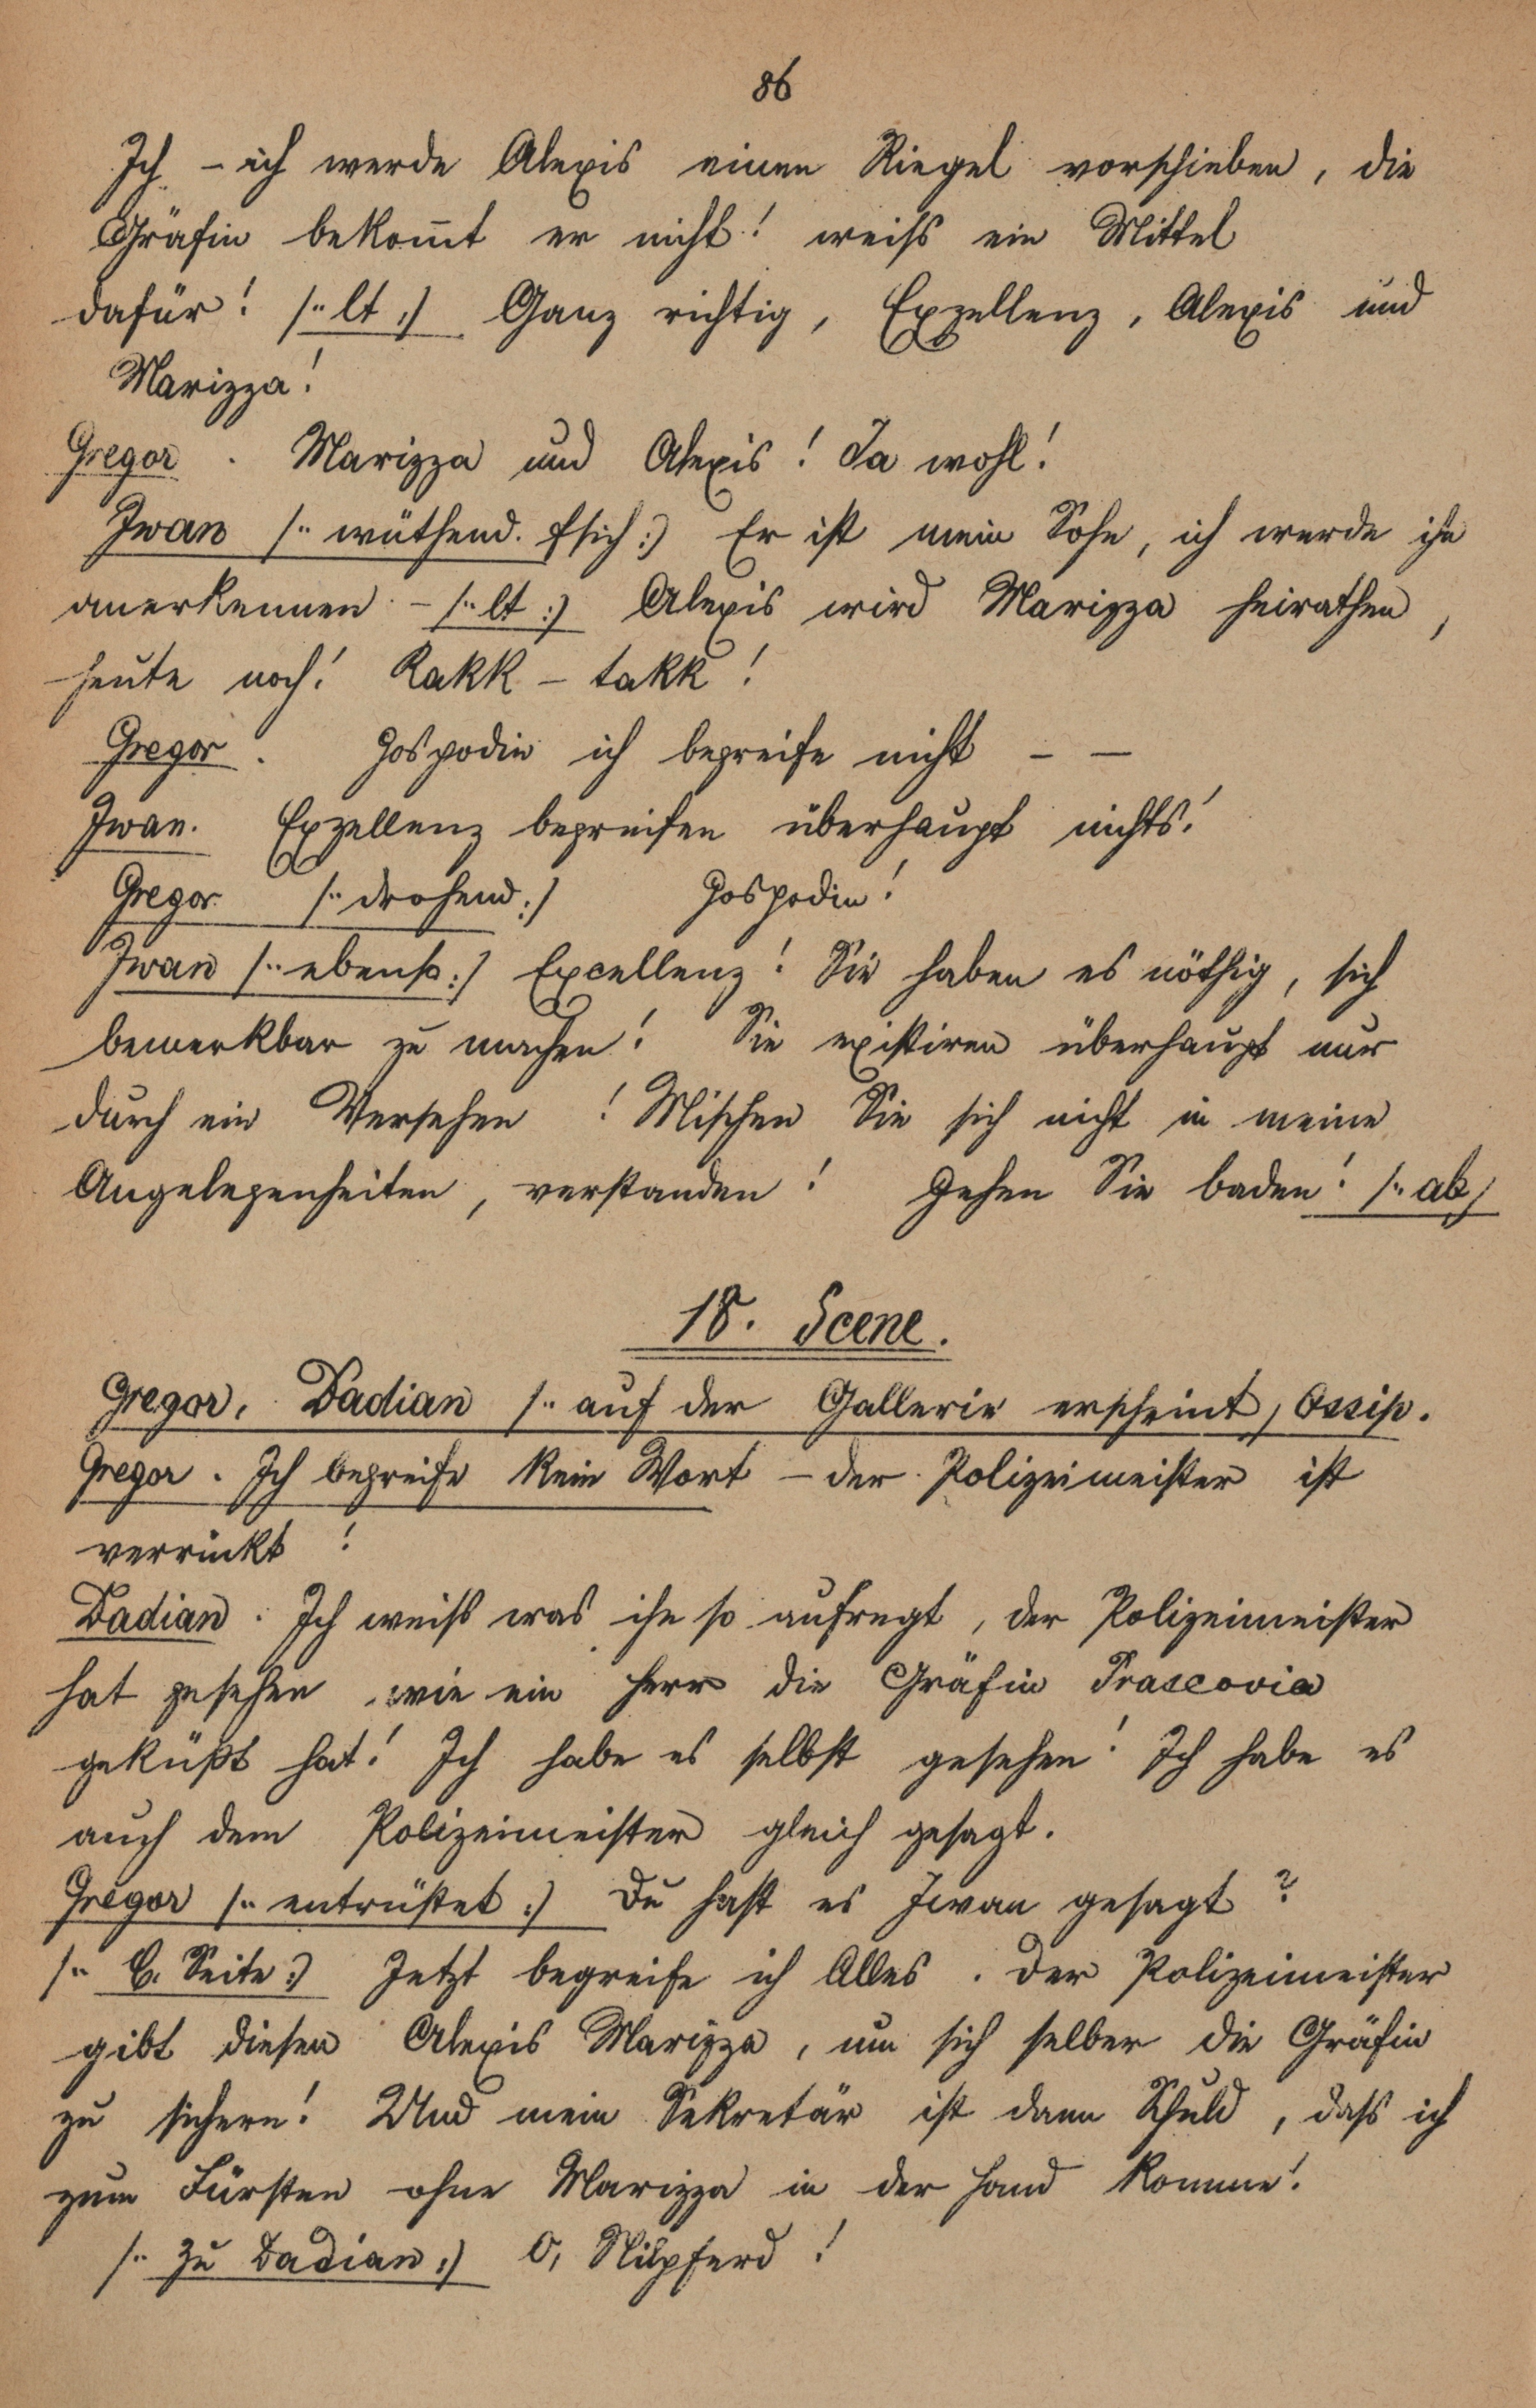 86
Ich – ich werde Alexis einen Riegel vorschieben, die
Gräfin bekom̅t er nicht! weiss ein Mittel
dafür! /: lt :/ Ganz richtig, Exzellenz, Alexis und
Marizza!
Gregor. Marizza und Alexis! Ja wohl!
Iwan /: wüthend. f sich :/ Er ist mein Sohn, ich werde ihn
anerkennen – /: lt :/ Alexis wird Marizza heirathen,
heute noch! Rakk – takk!
Gregor. Gospodin ich begreife nicht – –
Iwan. Exzellenz begreifen überhaupt nichts!
Gregor /: drohend :/ Gospodin!
Iwan /: ebenso :/ Excellenz! Sie haben es nöthig, sich
bemerkbar zu machen! Sie existiren überhaupt nur
durch ein Versehen! Mischen Sie sich nicht in meine
Angelegenheiten, verstanden! Gehen Sie baden! /: ab /
18. Scene.
Gregor, Dadian /: auf der Gallerie erscheint, Ossip.
Gregor. Ich begreife kein Wort – der Polizeimeister ist
verrückt!
Dadian. Ich weiss was ihn so aufregt, der Polizeimeister
hat gesehen, wie ein Herr die Gräfin Prascovia
geküßt hat! Ich habe es selbst gesehen! Ich habe es
auch dem Polizeimeister gleich gesagt.
Gregor /: entrüstet :/ Du hast es Iwan gesagt?
/: b. Seite :/ Jetzt begreife ich Alles. Der Polizeimeister
gibt diesen Alexis Marizza, um sich selber die Gräfin
zu sichern! Und mein Sekretär ist dann Schuld, dass ich
zum Fürsten ohne Marizza in der Hand komme!
/: zu Dadian :/ O, Nilpferd!